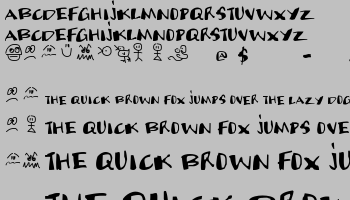 ABCDEFGHIJKLMNOPQRSTUVWXYZ
ABCDEFGHIJKLMNOPQRSTUVWXYZ
@ $ -
THE QUICK BROWN FOX JUMPS OVER THE LAZY DOG
THE QUICK BROWN FOX JUMPS OVE
THE QUICK BROWN FOX JU